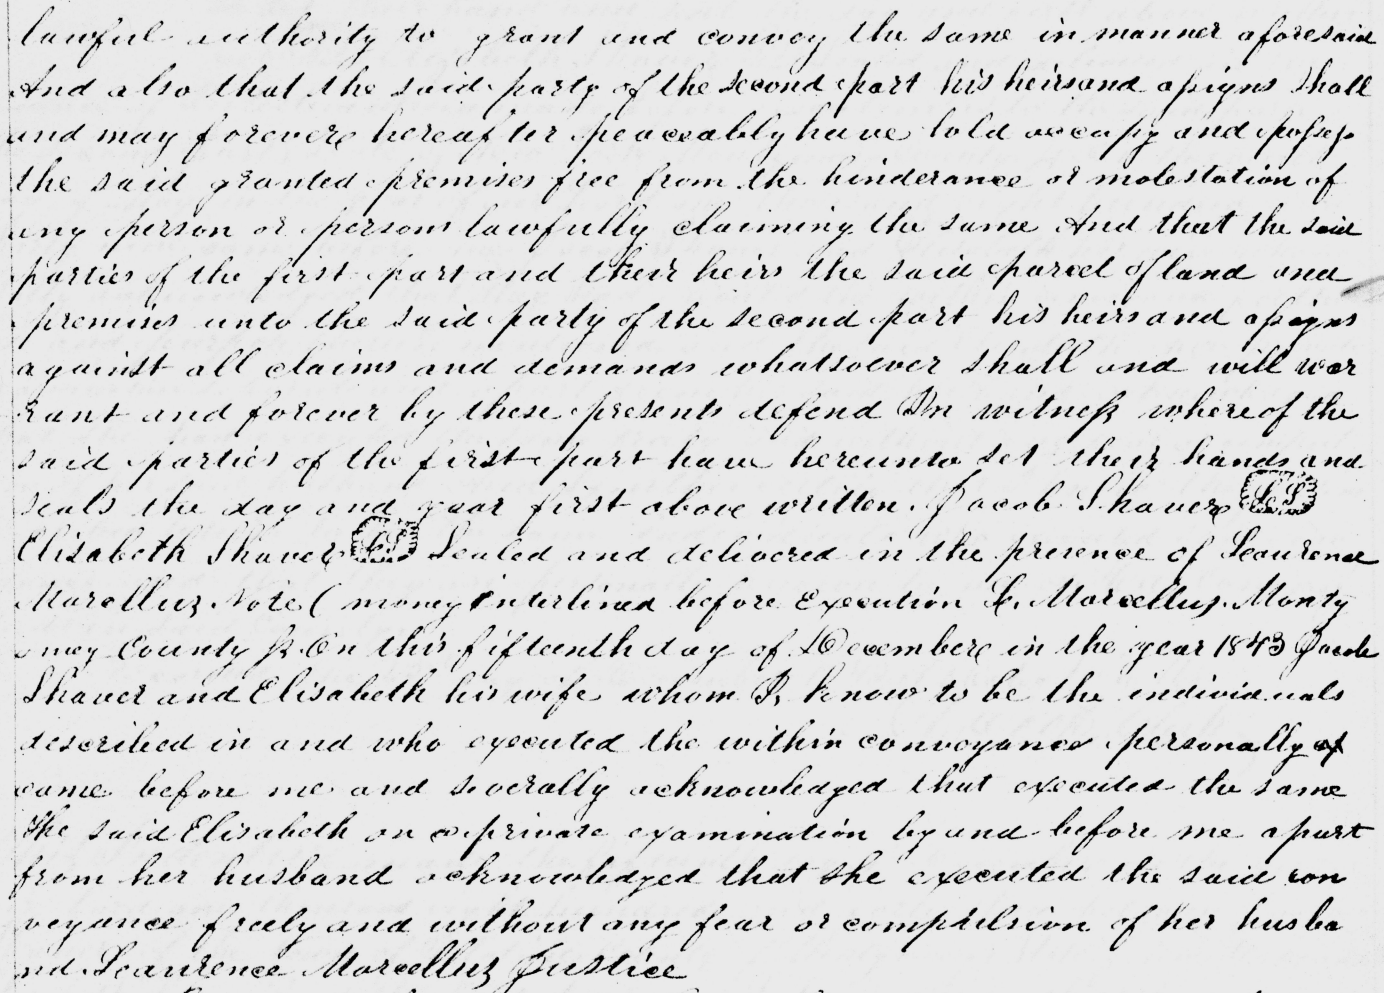 lawful authority to grant and convey the same in manner aforesaid
And also that the said party of the second part his heirs and assigns shall
and may forevere hereafter peaceably have hold occupy and possess
the said granted premises free from the hinderance or molestation of
any person or persons lawfully claiming the same And that the said
parties of the first part and their heirs the said parcel of land and
premises unto the said party of the second part his heirs and assigns
against all claims and demands whatsoever shall and will war
rant and forever by these presents defend In witness whereof the
said parties of the first part have hereunto set their hands and
seals the day and year first above written. Jacob Shaver LS
Elisabeth Shaver LS Sealed and delivered in the presence of Leaurence
Marcellus Note ( money interlined before Execution L. Marcellus. Montg
omey County ss On this fifteenth day of December in the year 1843 Jacob
Shaver and Elisabeth his wife whom I know to be the individuals
described in and who executed the within conveyance personally
came before me and severally acknowledged that executed the same
The said Elisabeth on a private examination by and before me apart
from her husband acknowledged that she executed the said con
veyance freely and without any fear or compulsion of her husba
nd. Leaurence Marcellus Justice